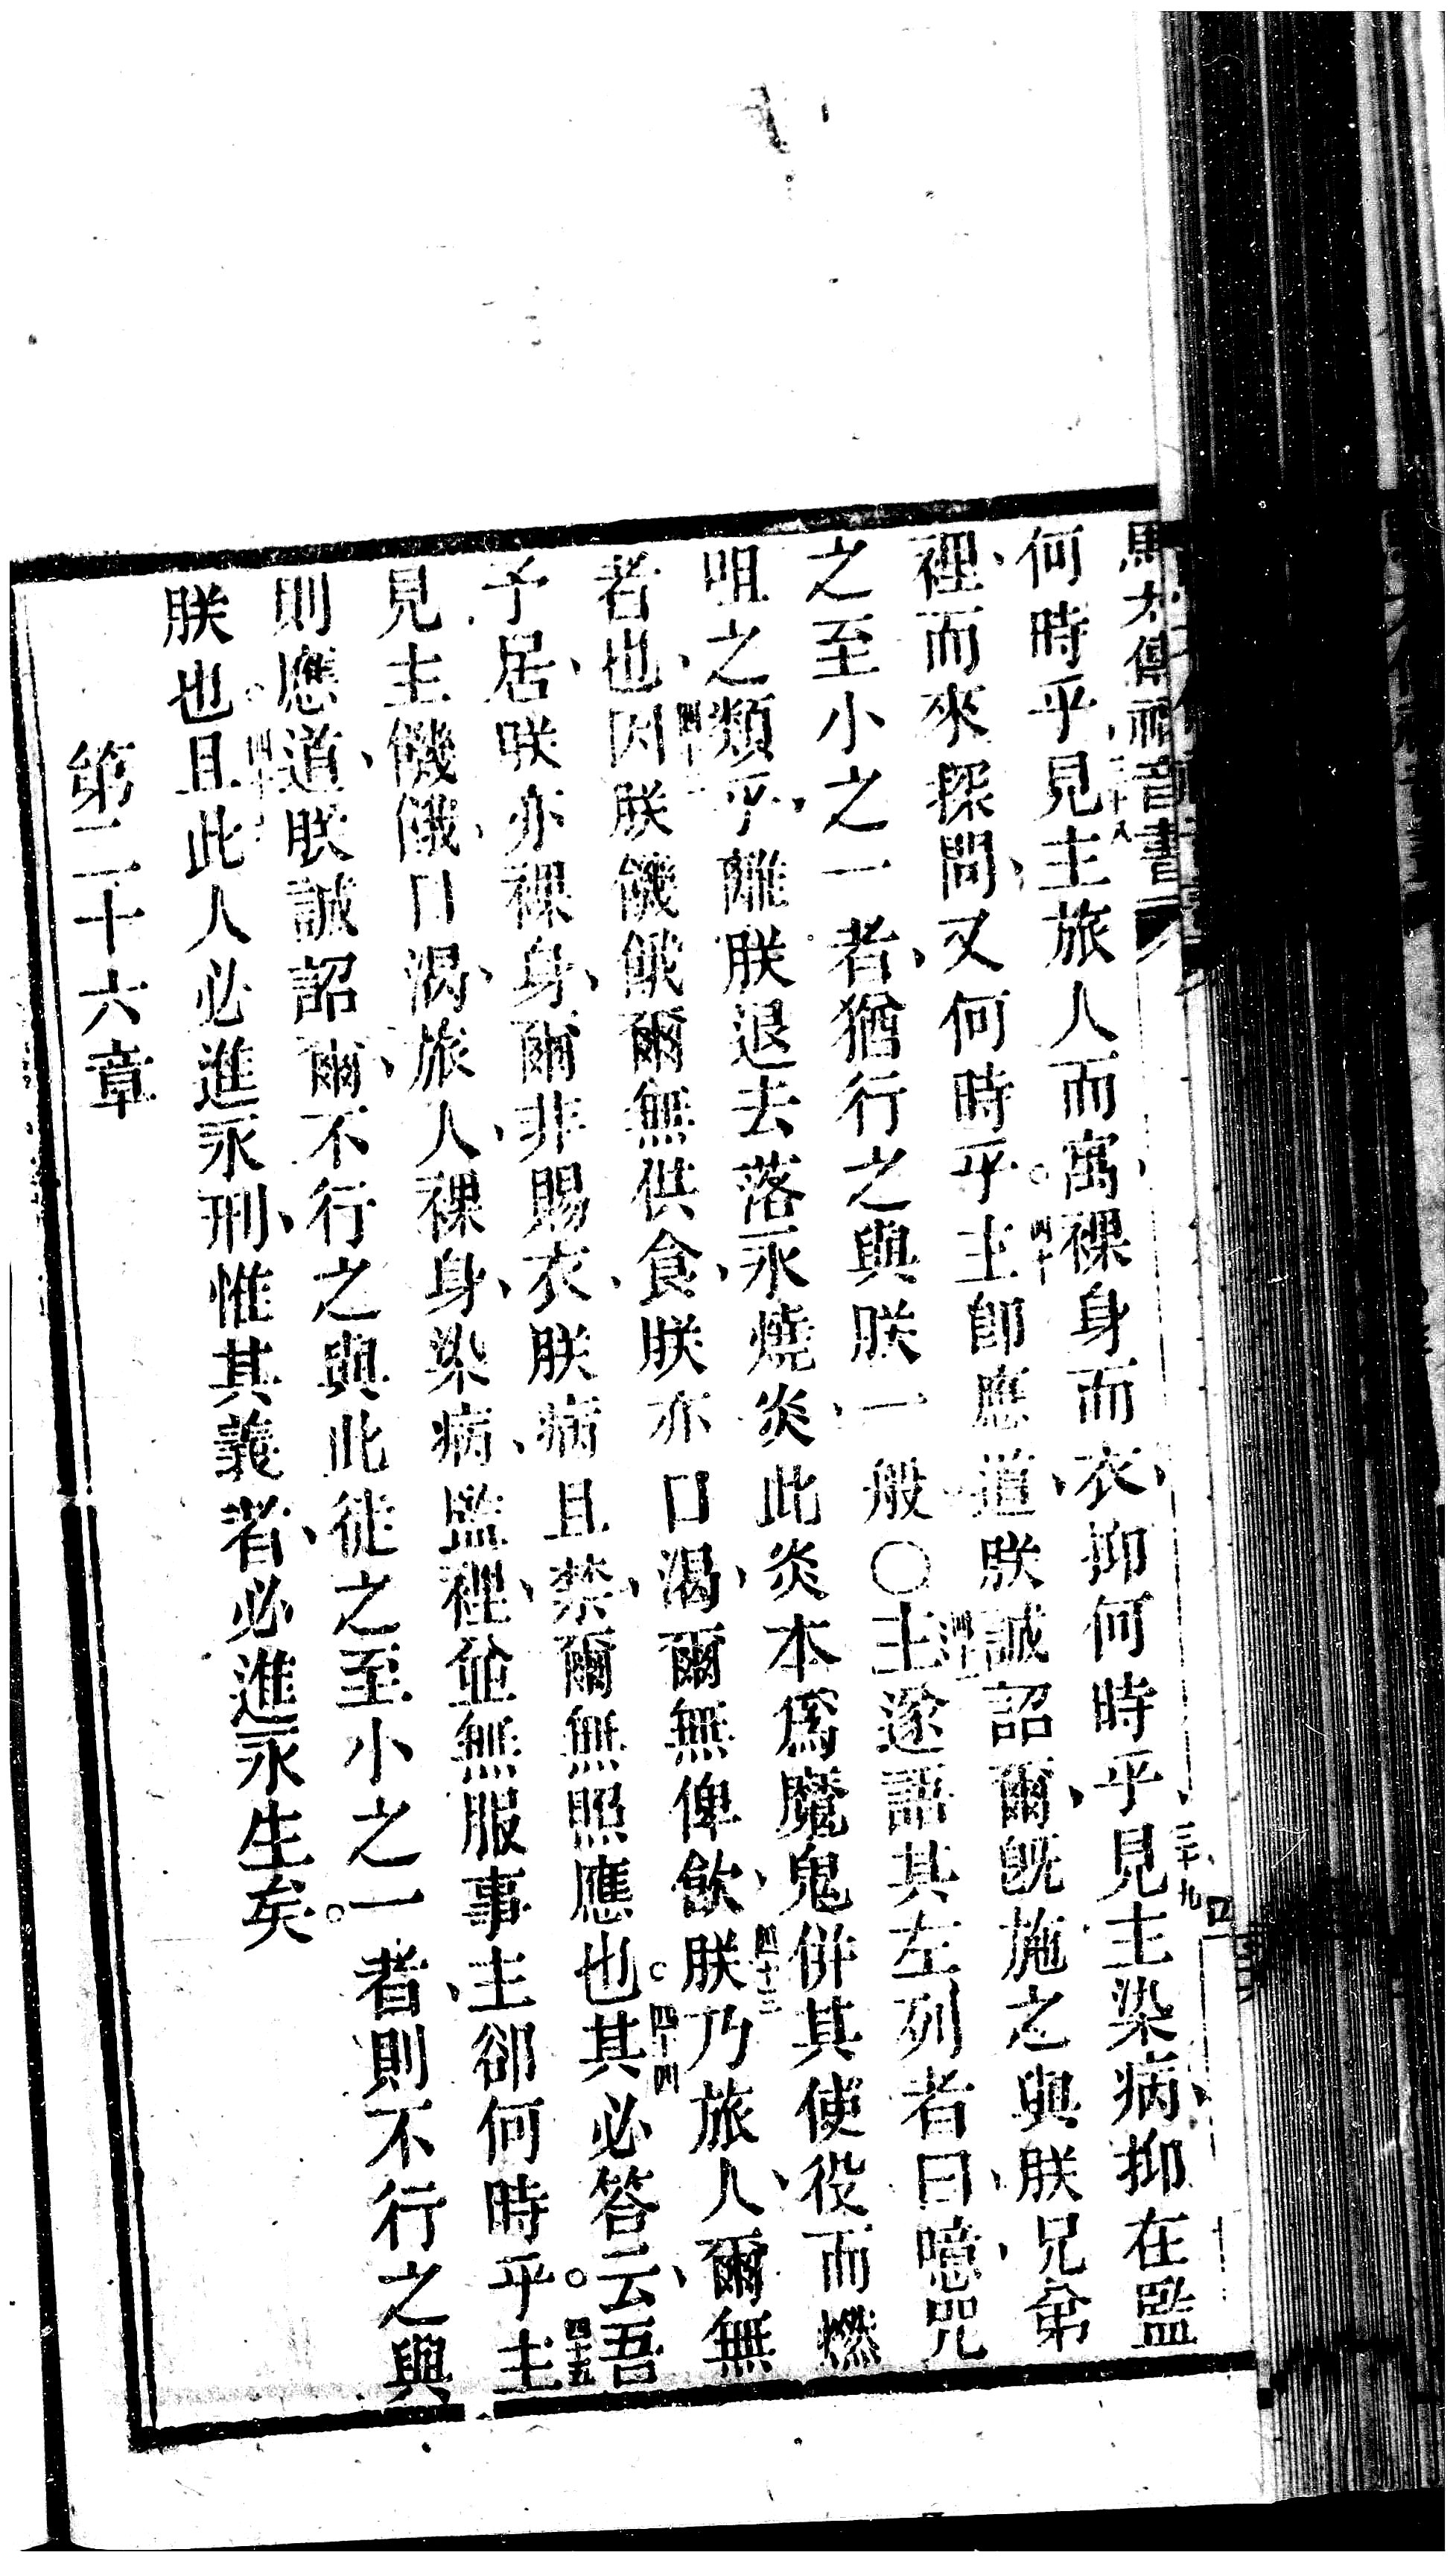 馬太傳福音書
何時乎見主旅人而寓、裸身而衣、抑何時乎見主染病、抑在監
三十八
三十九
裡、而來探問、又何時乎。主即應道、朕誠詔爾、旣施之與朕兄弟
四十
之至小之一者、猶行之與朕一般○主遂語其左列者曰、噫、咒
四十一
咀之類乎、離朕退去、落永燒炎、此炎本爲魔鬼、併其使役而燃
者也、因朕饑餓、爾無供食、朕亦口渴、爾無俾飲、朕乃旅人、爾無
四十二
四十三
予居、朕亦裸身、爾非賜衣、朕病且禁、爾無照應也。其必答云、吾
四十四
見主饑餓、口渴、旅人、裸身、染病、監裡、並無服事主、卻何時乎。主
四十五
則應道、朕誠詔爾、不行之與此徒之至小之一者、則不行之與
朕也。且此人必進永刑、惟其義者、必進永生矣。
第二十六章